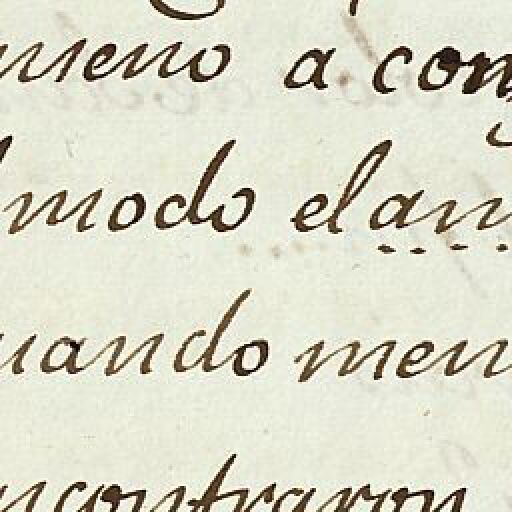 meno a con
modo el am
uando men
ncontraron